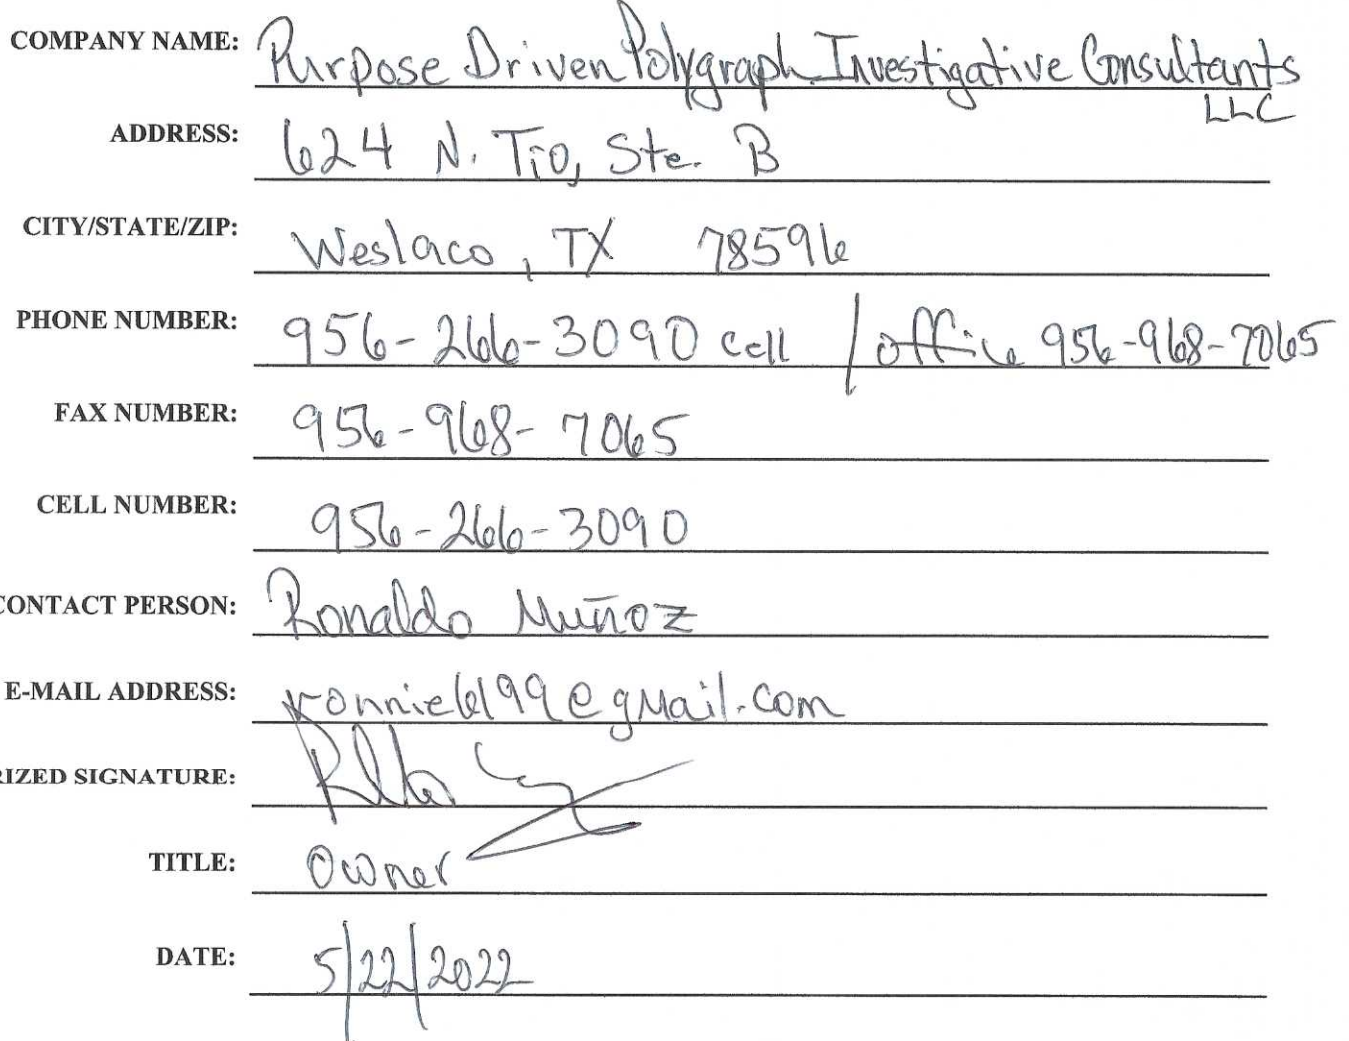 COMPANY NAME: Purpose Driven Polygraph Investigative Consultants
LLC
ADDRESS: 624 N. Tio, Ste. B
CITY/STATE/ZIP: Weslaco, TX 78596
PHONE NUMBER: 956-266-3090 cell / office 956-968-7065
FAX NUMBER: 956-968-7065
CELL NUMBER: 956-266-3090
CONTACT PERSON: Ronaldo Muñoz
E-MAIL ADDRESS: ronnie6199@gmail.com
RIZED SIGNATURE:
TITLE: Owner
DATE: 5/22/2022